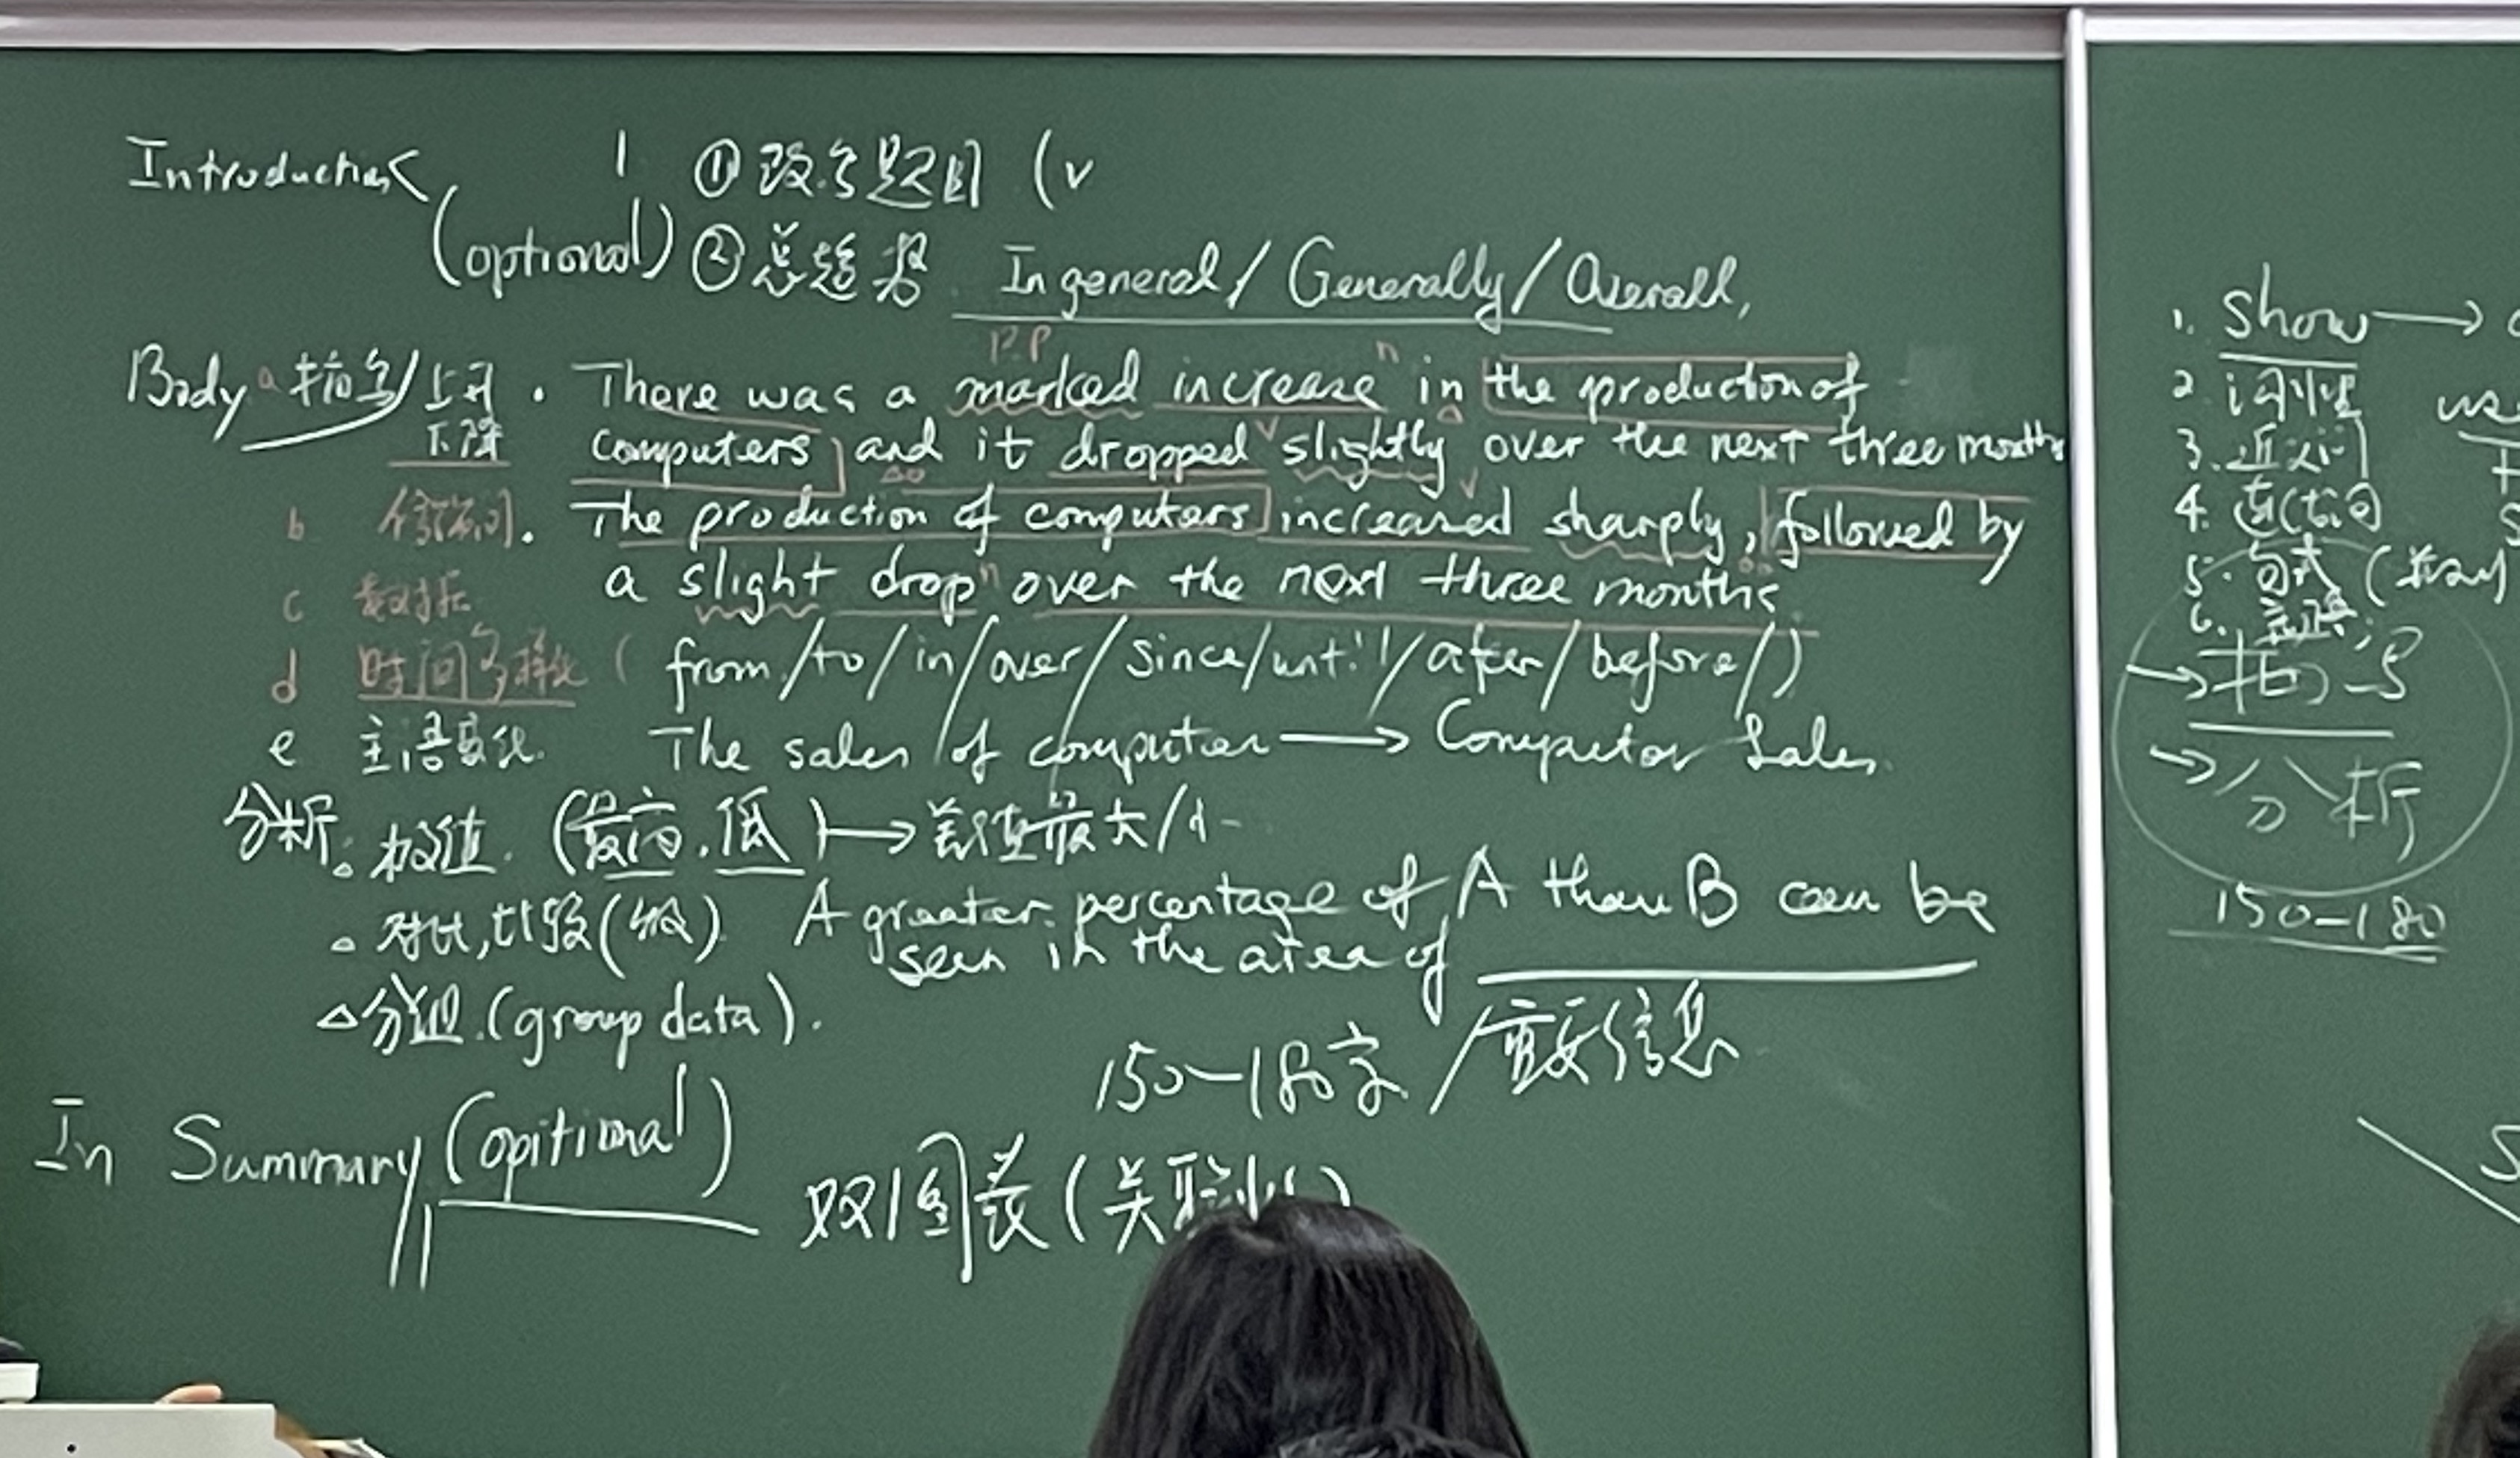 Introduction 1 ① 改写题目 (v
(optional) ② 总趋势 In general / Generally / Overall,
Body a 描写 / 上升 . There was a marked increase in the production of
P.P n
下降 computers and it dropped slightly over the next three months
v
b 修饰词 . The production of computers increased sharply, followed by
v
a slight drop over the next three months
n
c 数据
d 时间多样化 ( from / to / in / over / since / until / after / before / )
e 主语变化. The sales of computer → Computer Sales.
分析: 极值. (最高.低) → 差值最大/小
对比,比较(级) A greater percentage of A than B can be
seen in the area of
△ 分组.(group data).
150-180字 / 重要信息
In Summary (opitional)
双图表 (关联性)
1. show →
2. 词性 us
3. 近义词
4.
5. 句式
6.
→ 描写
→ 分析
150-180
S